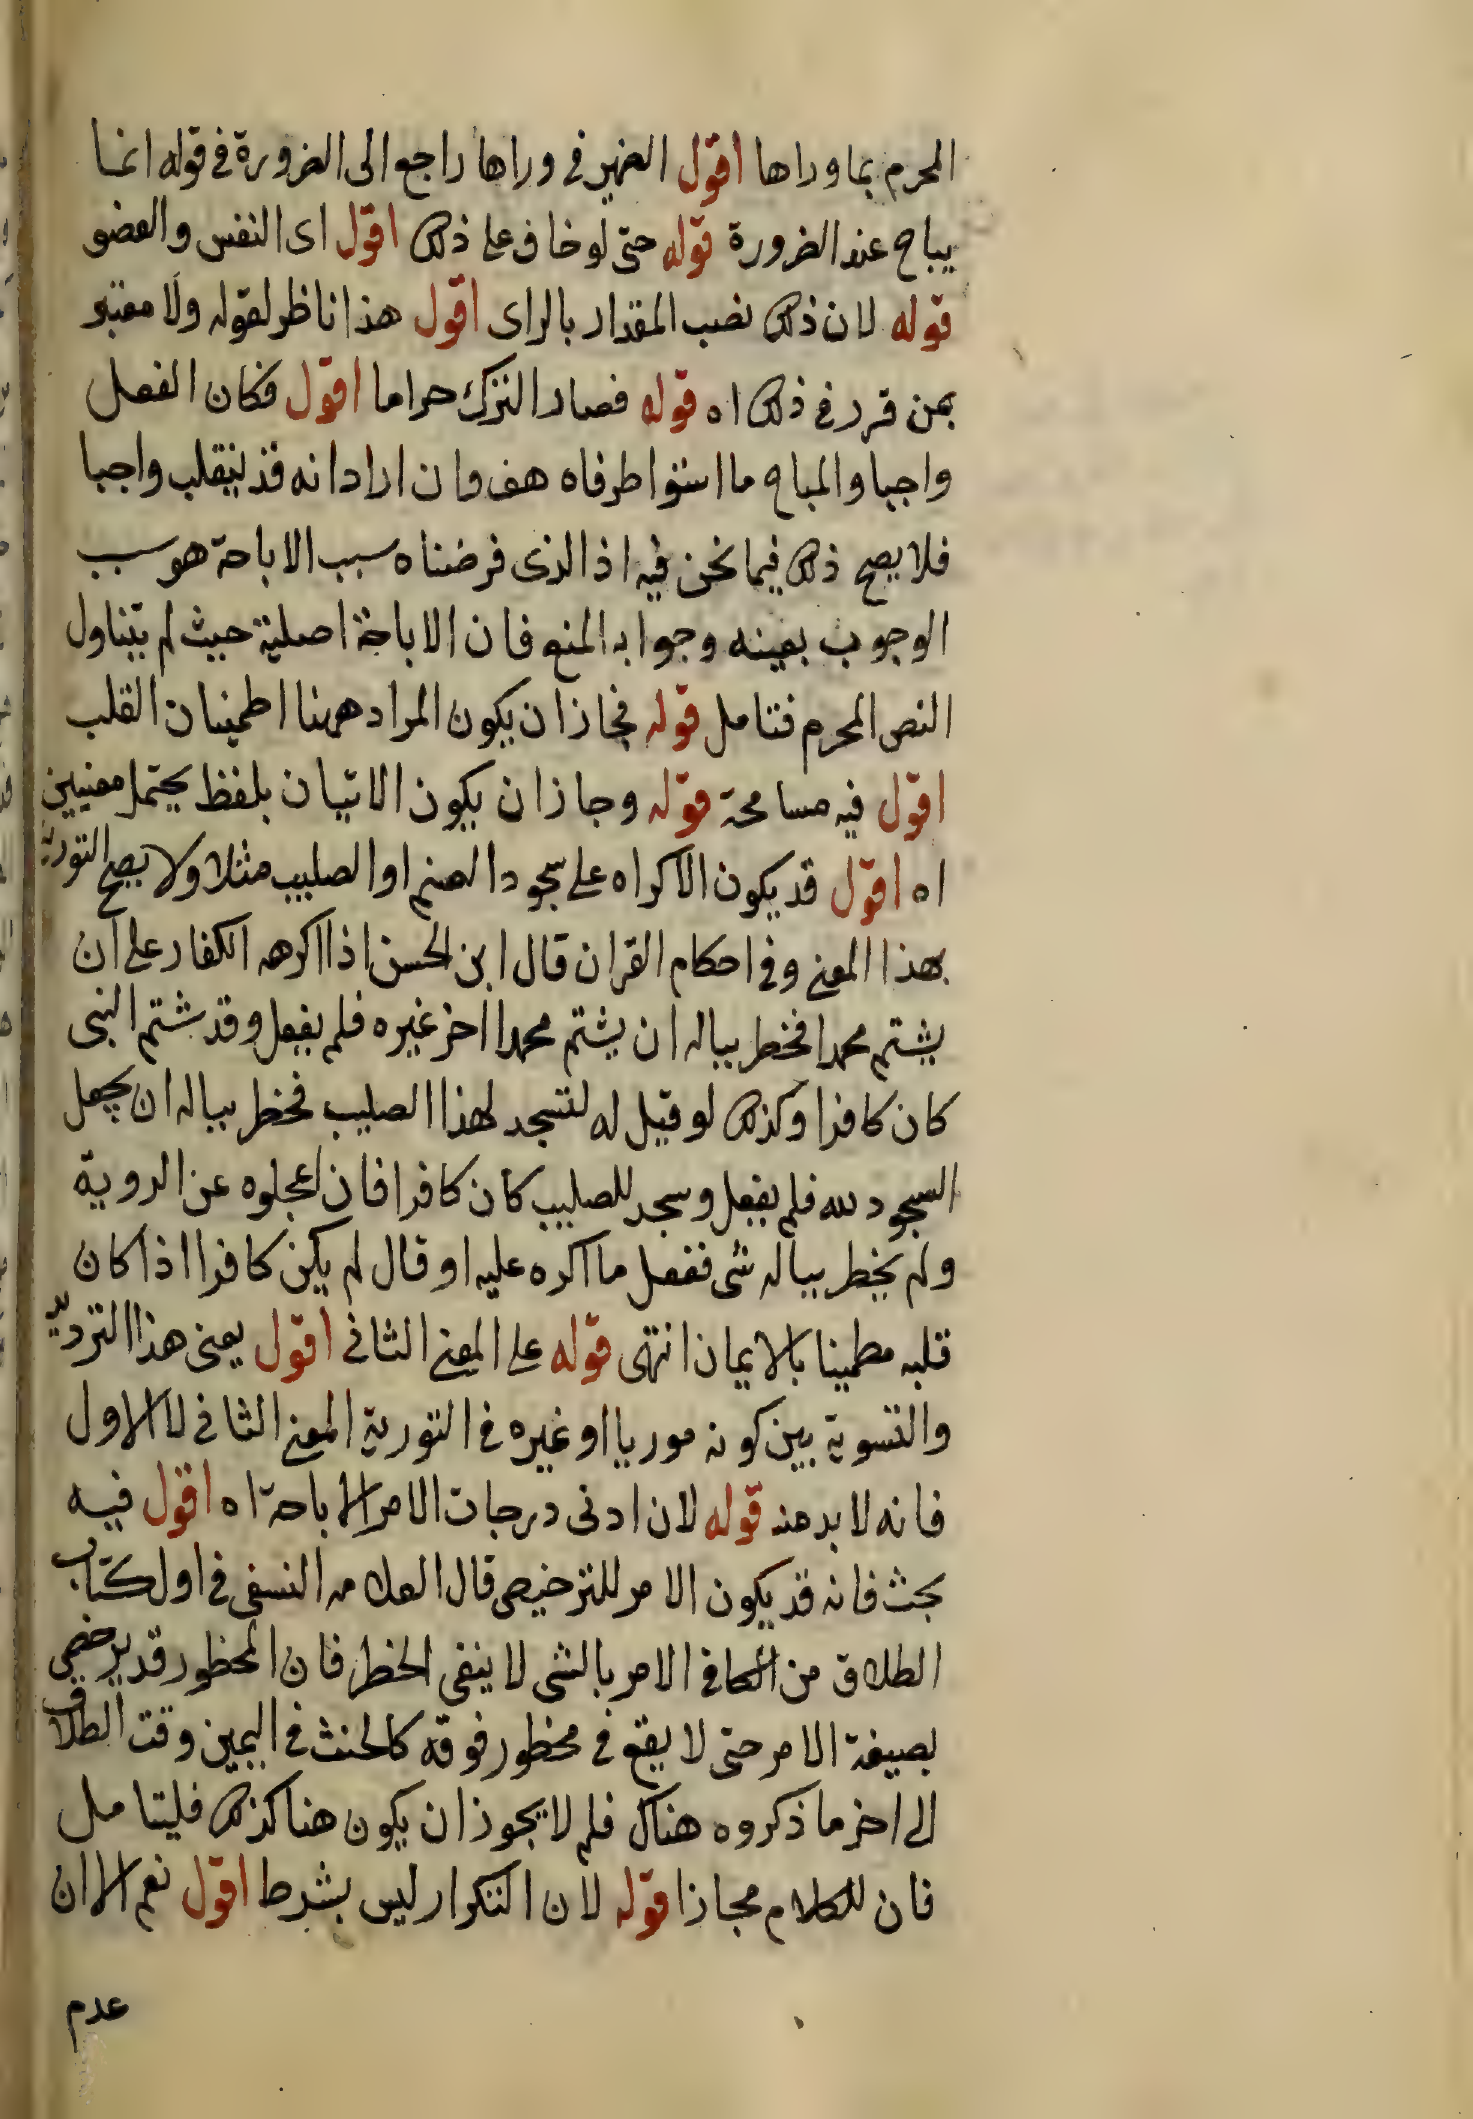 المحرم بما وراها اقول الضمير في وراها راجع الى الضرورة في قوله انما
يباح عند الضرورة قوله حتى لو خاف على ذلك اقول اى النفس والعضو
قوله لان ذلك نصب المقدار بالراى اقول هذا ناظر لقوله ولا معتبر
بمن قرر في ذلك اه قوله فصار الترك حراما اقول فكان الفعل
واجبا والمباح ما استوا طرفاه هف وان اراد انه قد ينقلب واجبا
فلا يصح ذلك فيما نحن فيه اذ الذى فرضناه سبب الاباحة هو سبب
الوجوب بعينه وجوابه المنع فان الاباحة اصلية حيث لم يتناول
النص المحرم فتامل قوله فجاز ان يكون المراد ههنا اطمينان القلب
اقول فيه مسامحة قوله وجاز ان يكون الاتيان بلفظ يحتمل معنيين
اه اقول قد يكون الاكراه على سجود الصنم او الصليب مثلا ولا يصح التورية
بهذا المعنى وفي احكام القران قال ابن الحسن اذا اكرهه الكفار على ان
يشتم محمدا فخطر بباله ان يشتم محمدا اخر غيره فلم يفعل وقد شتم النبى
كان كافرا وكذلك لو قيل له لتسجد لهذا الصليب فخطر بباله ان يجعل
السجود لله فلم يفعل وسجد للصليب كان كافرا فان اعجلوه عن الروية
ولم يخطر بباله شى ففعل ما اكره عليه او قال لم يكن كافرا اذا كان
قلبه مطمينا بالايمان انتهى قوله على المعنى الثانى اقول يعنى هذا الترديد
والتسوية بين كونه موريا او غيره في التورية المعنى الثانى لا الاول
فانه لا بد منه قوله لان ادنى درجات الامر الاباحة اه اقول فيه
بحث فانه قد يكون الامر للترخيص قال العلامه النسفى في اول كتاب
الطلاق من الكافى الامر بالشى لا ينفى الحظر فان المحظور قد يرخص
بصيغة الامر حتى لا يقع في محظور فوقه كالحنث في اليمين وقت الطلاق
الى اخر ما ذكروه هناك فلم لا يجوز ان يكون هنا كذلك فليتامل
فان للكلام مجازا قوله لان التكرار ليس بشرط اقول نعم الا ان
عدم